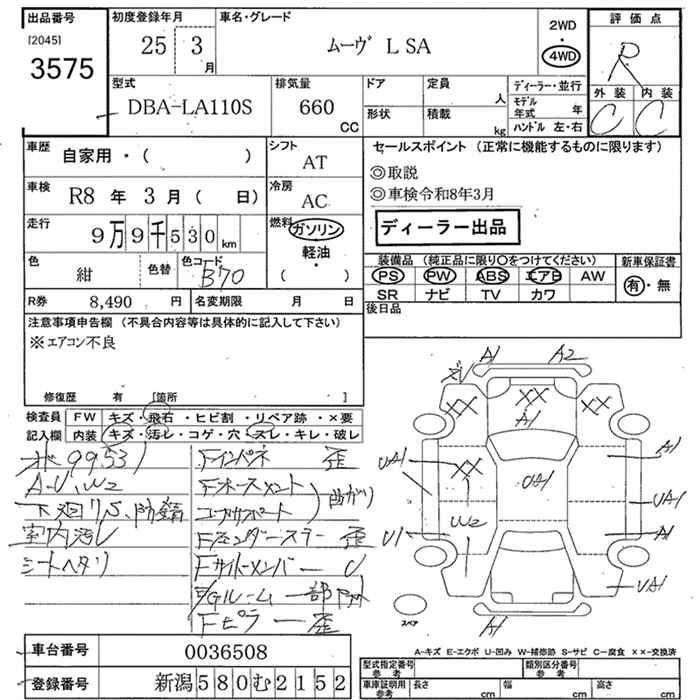 出品番号
[2045]
3575
初度登録年月
25 3 月
車名・グレード
ムーヴ L SA
2WD
・
4WD
評価点
R
外装 内装
C C
型式
DBA-LA110S
排気量
660 CC
ドア
形状
定員 人
積載 kg
ディーラー・並行
モデル年式 年
ハンドル 左・右
車歴 自家用・( )
シフト AT
車検 R8 年 3 月 ( 日)
冷房 AC
走行 9万9千530 km
燃料 ガソリン
軽油・
( )
色 紺 色替 色コード B70
R券 8,490 円 名変期限 月 日
セールスポイント (正常に機能するものに限ります)
◎取説
◎車検令和8年3月
ディーラー出品
装備品 (純正品に限り○をつけてください)
PS PW ABS エアB AW
SR ナビ TV カワ
新車保証書
有・無
後日品
注意事項申告欄 (不具合内容等は具体的に記入して下さい)
※エアコン不良
修復歴 有 [箇所 ]
検査員記入欄
FW キズ・飛石・ヒビ割・リペア跡・×要
内装 キズ・汚レ・コゲ・穴・スレ・キレ・破レ
A-U、W2
下廻りS、防錆
室内汚レ
シートヘタリ
Fインパネ 歪
曲がり
Fフェンダーステー 歪
Fサイドメンバー U
Fピラー 歪
A1 A2
XX XX
A1
UA1
XX
UA1
W2
U1
A1
UA1
A1
UA1
A1
スペア
A-キズ E-エクボ U-凹み W-補修跡 S-サビ C-腐食 ××-交換済
車台番号 0036508
登録番号 新潟580む2152
型式指定番号 参考
類別区分番号 参考
車庫証明用 参考 長さ cm 幅 cm 高さ cm